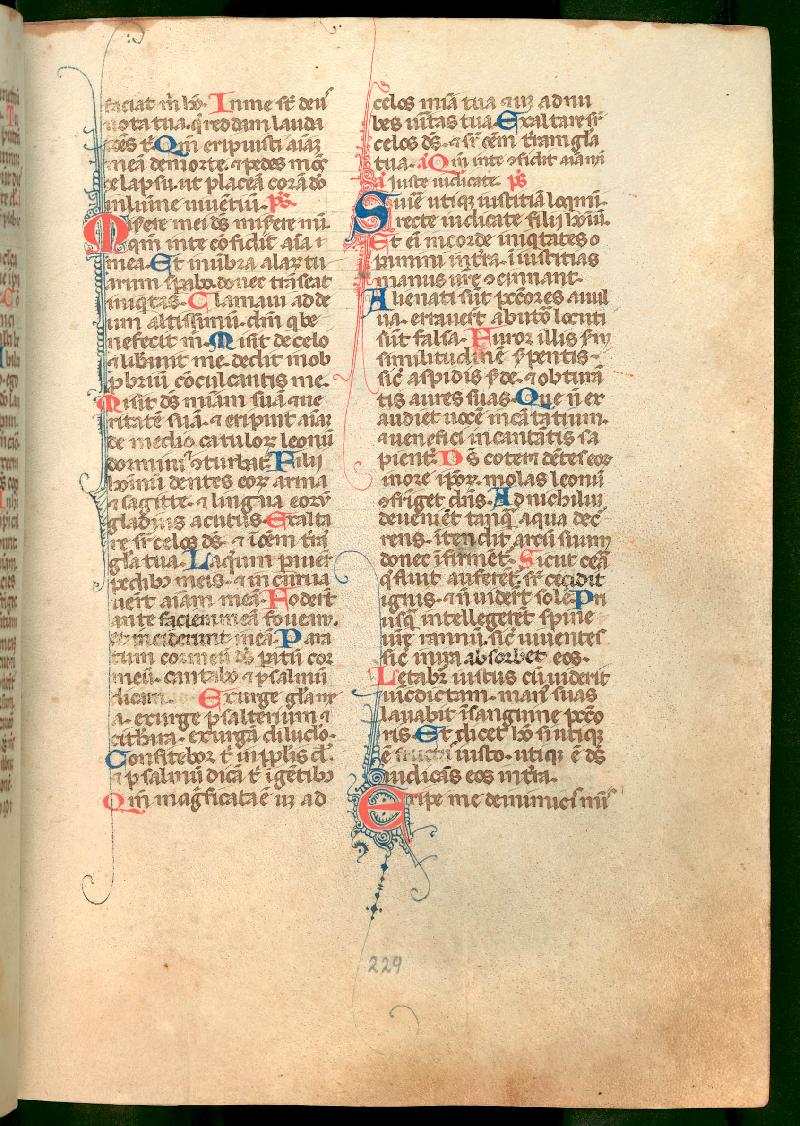 faciat m̄ hō. In me st̄ deus
uota tua. q̄ reddam lauda
t̄ões t̄. Qm̄ eripuisti aīaꝫ
meā de morte. ⁊ pedes meos
de lapsu. ut placeā corā dō
in lumine uiuētiū. p̄s.
Miserere mei ds̄ miserere mī
qm̄ in te cōfidit aīa
mea. Et in ūbra alaꝝ tu
arum sꝑabo. donec trāseat
iniqitas. Clamaui ad de
um altissimū. dm̄ q̄ be
nefecit m̄. Misit de celo
⁊ libauit me. dedit in ob
ꝓbriū cōculcantis me.
Misit ds̄ mīam suā ⁊ ue
ritatē suā. ⁊ eripuit aīaꝫ
de medio catuloꝝ leonū
dormiui ꝯturbat. Filij
hoīnū dentes eoꝝ arma
⁊ sagitte. ⁊ lingua eorū
gladius acutus. Exalta
re sr̄ celos ds̄. ⁊ ī oēm trā
gl̄a tua. Laqueum ꝑauer
pedibꝫ meis. ⁊ incurua
uer̄t aīam meā. Foder̄t
ante faciem meā foueam.
et inciderunt in eā. Para
tum cor meū ds̄ patū cor
meū. cantabo ⁊ psalmū
dicam. Exurge gl̄a me
a. exurge psalterium ⁊
cithara. exurgā diluclo.
Confitebor t̄ in pplis dn̄e
⁊ psalmū dicā t̄ ī gētibꝫ
Qm̄ mag̅ficata ē usqꝫ ad
celos mīa tua ⁊ usqꝫ ad nu
bes ūitas tua. Exaltare sr̄
celos ds̄. ⁊ sr̄ oēm trām gl̄a
tua. Qm̄ in te ꝯfidit aīa mea
iuste iudicate. p̄s
Si uere utiqꝫ iustitiā loqmī.
recte iudicate filij hoīnū.
Et eī in corde iniqitates o
ꝑamini in tr̄a. īiustitias
manus ur̄e ꝯcinnant.
Alienati sūt pccōres a uul
ua. errauer̄t ab utō locuti
sūt falsa. Furor illis scdm
similitudinē sꝑentis.
sic̄ aspidis sd̄e. ⁊ obturā
tis aures suas. Que n̄ ex
audiet uocē incātātium.
⁊ uenefici incantātis sa
pient̄. Ds̄ ꝯteret dētes eoꝝ
in ore ip̄oꝝ. molas leonū
ꝯfriget dn̄s. Ad nichilum
deueniēt tamqꝫ aqua dec̄
rens. ītendit arcū suum
donec īfirment̄. Sicut cera
q̄ fluit auferēt̄. sr̄ cecidit
ignis. ⁊ n̄ uider̄t solē. Pri
usqꝫ intellegerēt spine
ur̄e ramnū. sic̄ uiuentes
sic̄ in ira absorbet eos.
Letabit̄ iustus cū uiderit
uīdictam. man̄ suas
lauabit ī sanguine pccō
ris. Et dicet hō si utiqꝫ
ē fructus iusto. utiqꝫ ē ds̄
iudicās eos in tr̄a.
Eripe me de inimicis mis̄
229